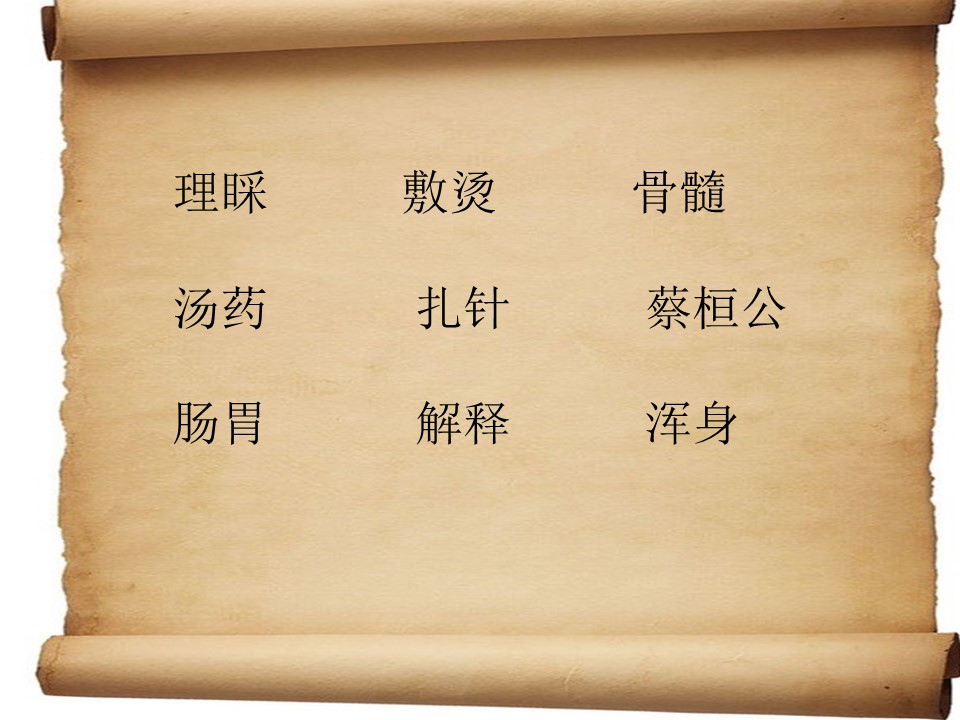 理睬 敷烫 骨髓
汤药 扎针 蔡桓公
肠胃 解释 浑身